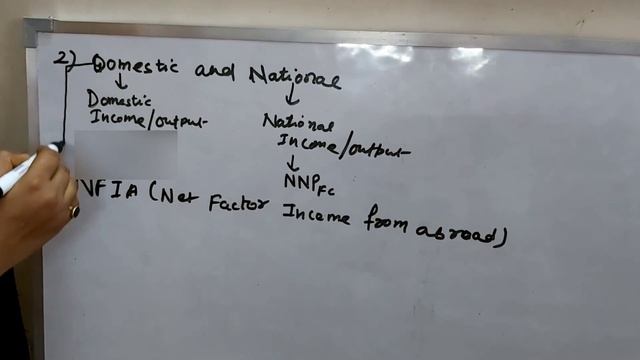 2) Domestic and National
Domestic
Income/output
National
Income/output
NNPFC
NFIA (Net Factor Income from abroad)